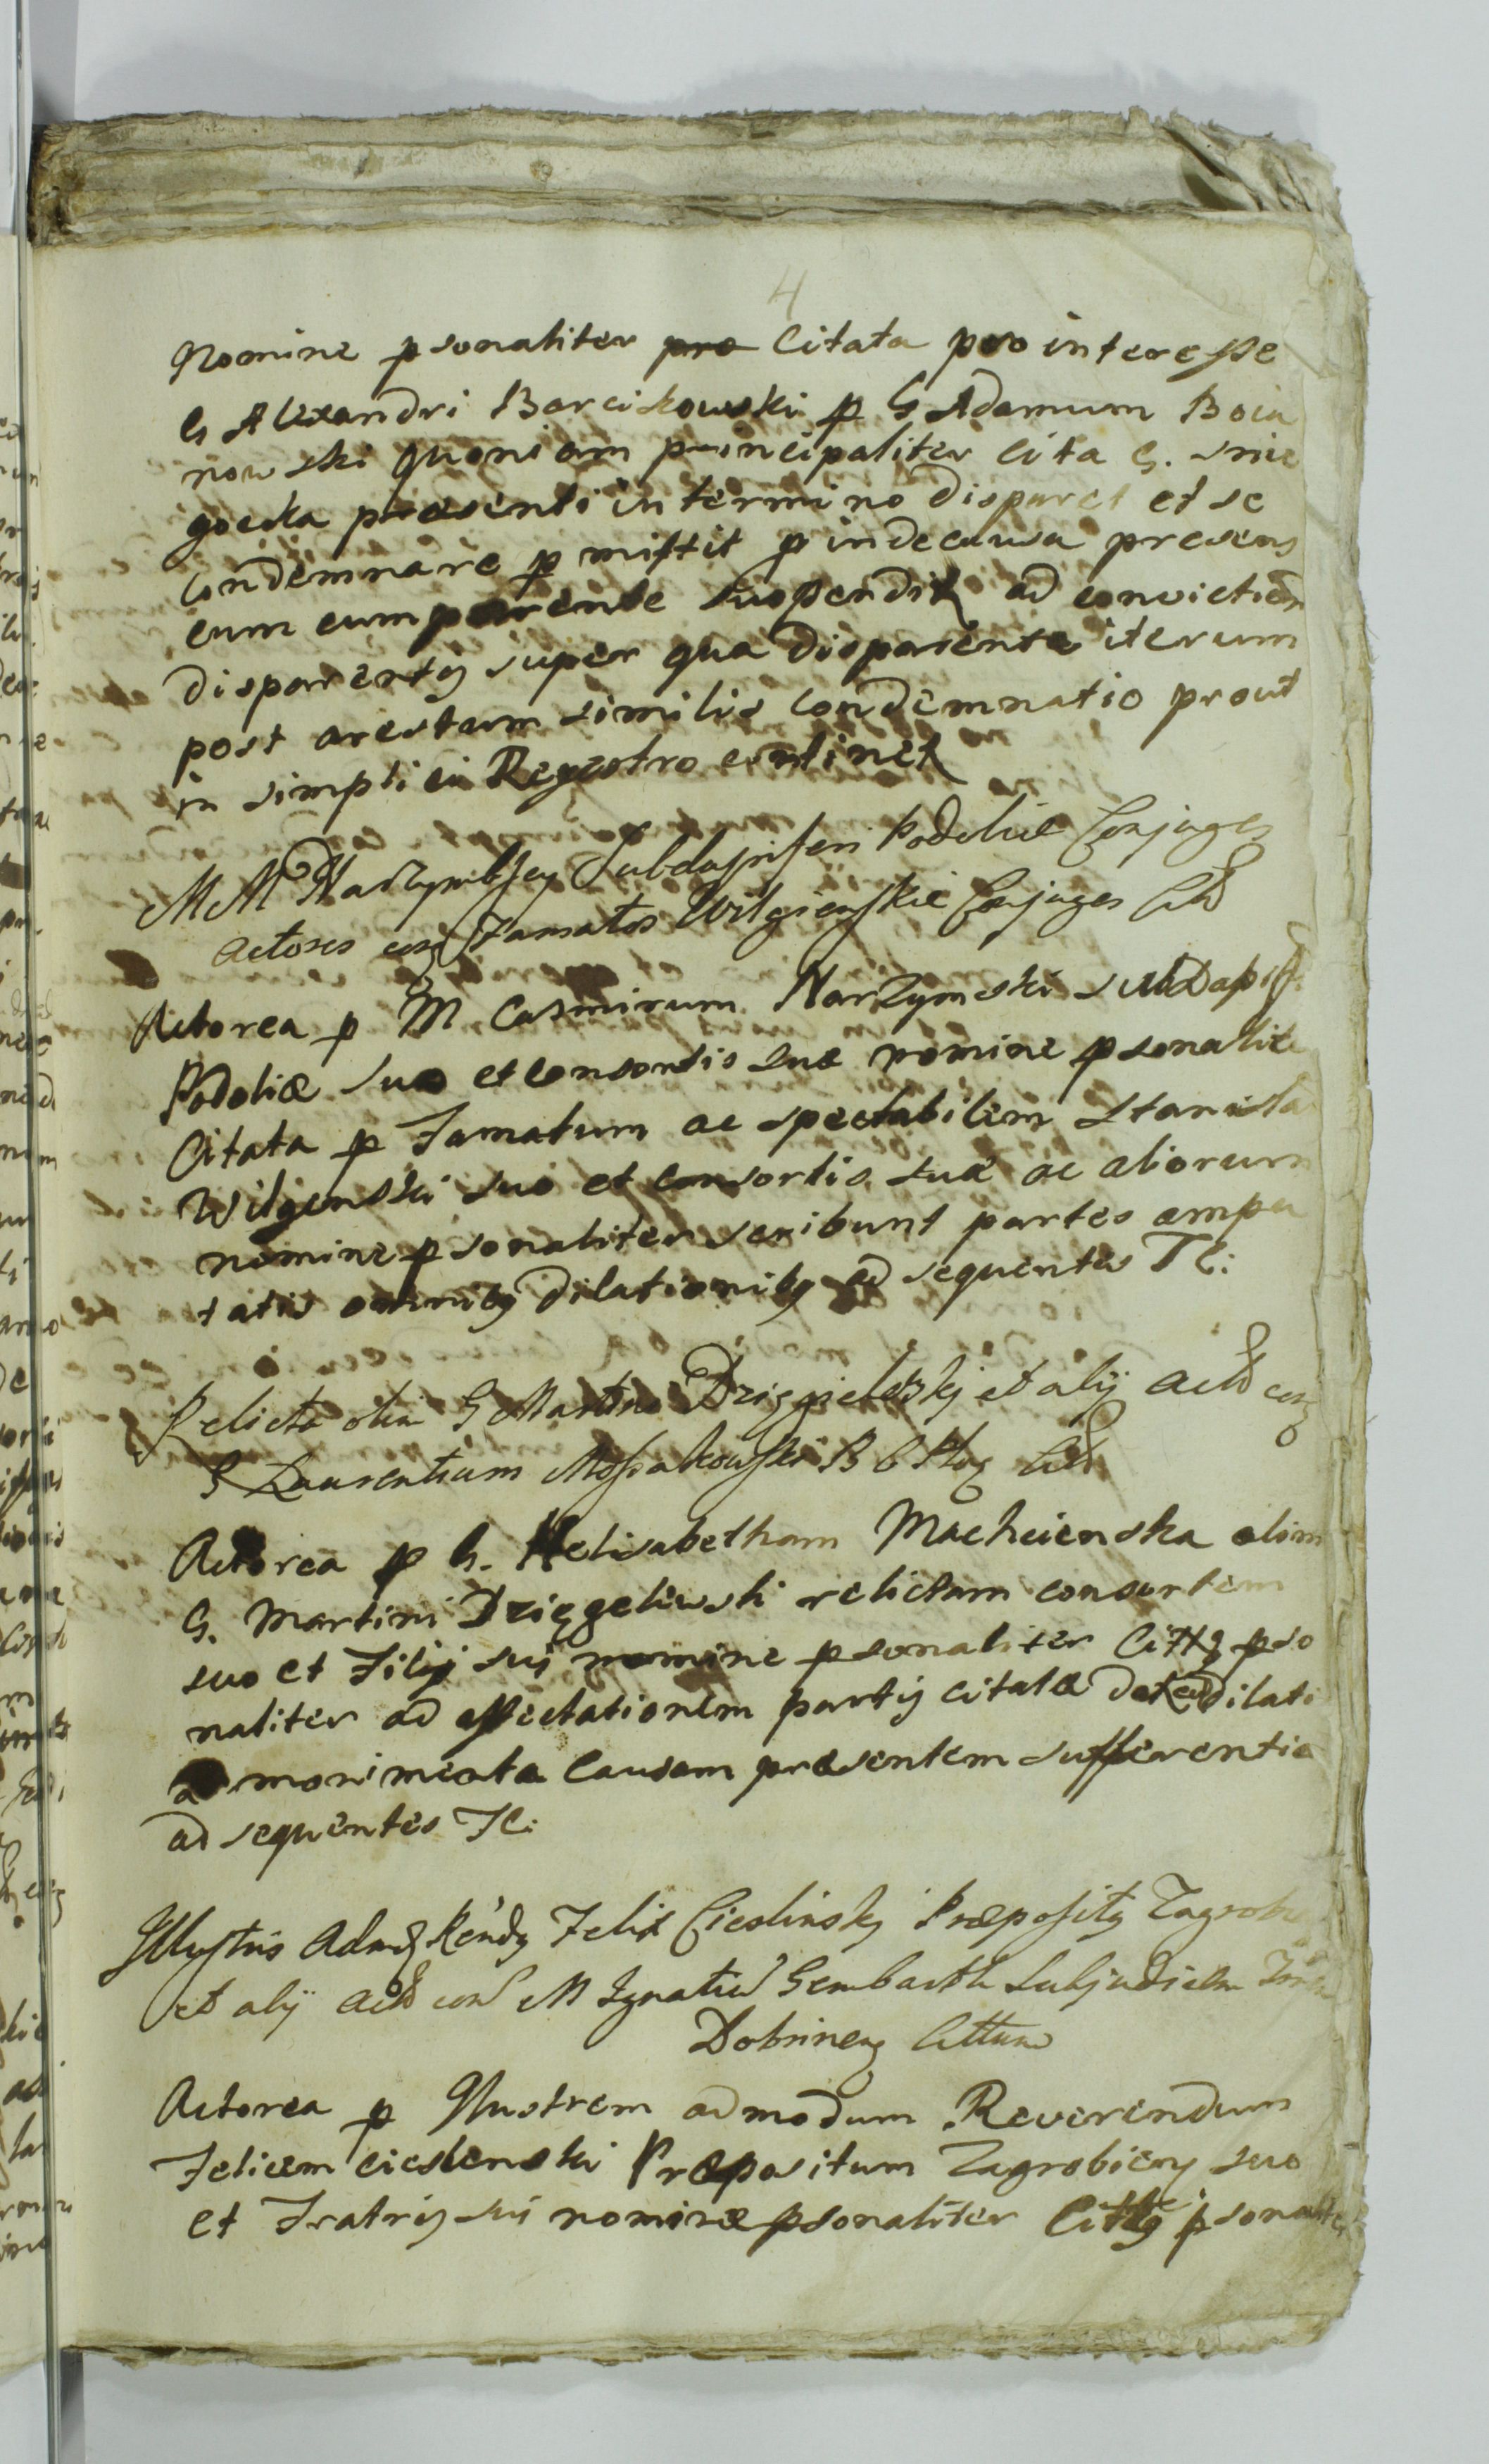 4
Nomine psonaliter pro Citata pro interesse
G Alexandri Barcikowski p G Adamum Boia
nowski quoniam principaliter Cita G. Snie
gocka presenti in termino disparet et se
Condemnare pmittit p inde causa presens
cum cumparente suspenditr ad convictiom
disparentis super qua disparente iterum
post arestum similis Condemnatio prout
in simplici Regestro continetr
MM Narzymskey Subdapiferi Podoliæ Conjuges
Actores con Famatos Wilgienskie Conjuges Citt
Actorea p M Casmirum Narzymski Subdapif.
Podoliæ suo et Consortis suæ nomine psonalite
Citata p Famatum ac spectabilem Stanisla
Wilgenski suo et Consortis suæ ac aliorum
nomine psonaliter scribunt partes ampu
tatis omnibg dilationibg ad sequentes TC:
Relicta olim G Martini Dzięgielewskj et alij Actt con
G Laurentium Mossakowski B C Citt
Actorea p G. Helisabetham Macheienska olim
G. Martini Dzięgelewski relictam consortem
suo et Filij sui nomine psonaliter Citt pso
naliter ad affectationem partis citatæ detr dilati
ad monimenta Causam præsentem sufferentia
ad sequentes TC:
Illustris Admd Rendg Felix Cieslinskj Præpositg Zagrobie
et alij Actt con M Ignatiu Gembarth Subjudicem
Dobrineng Cittum
Actorea p Illustrem admodum Reverendum
Felicem cieslenski Præpositum Zagrobieng suo
et Fratris sui nomine psonaliter Citt psonaliter